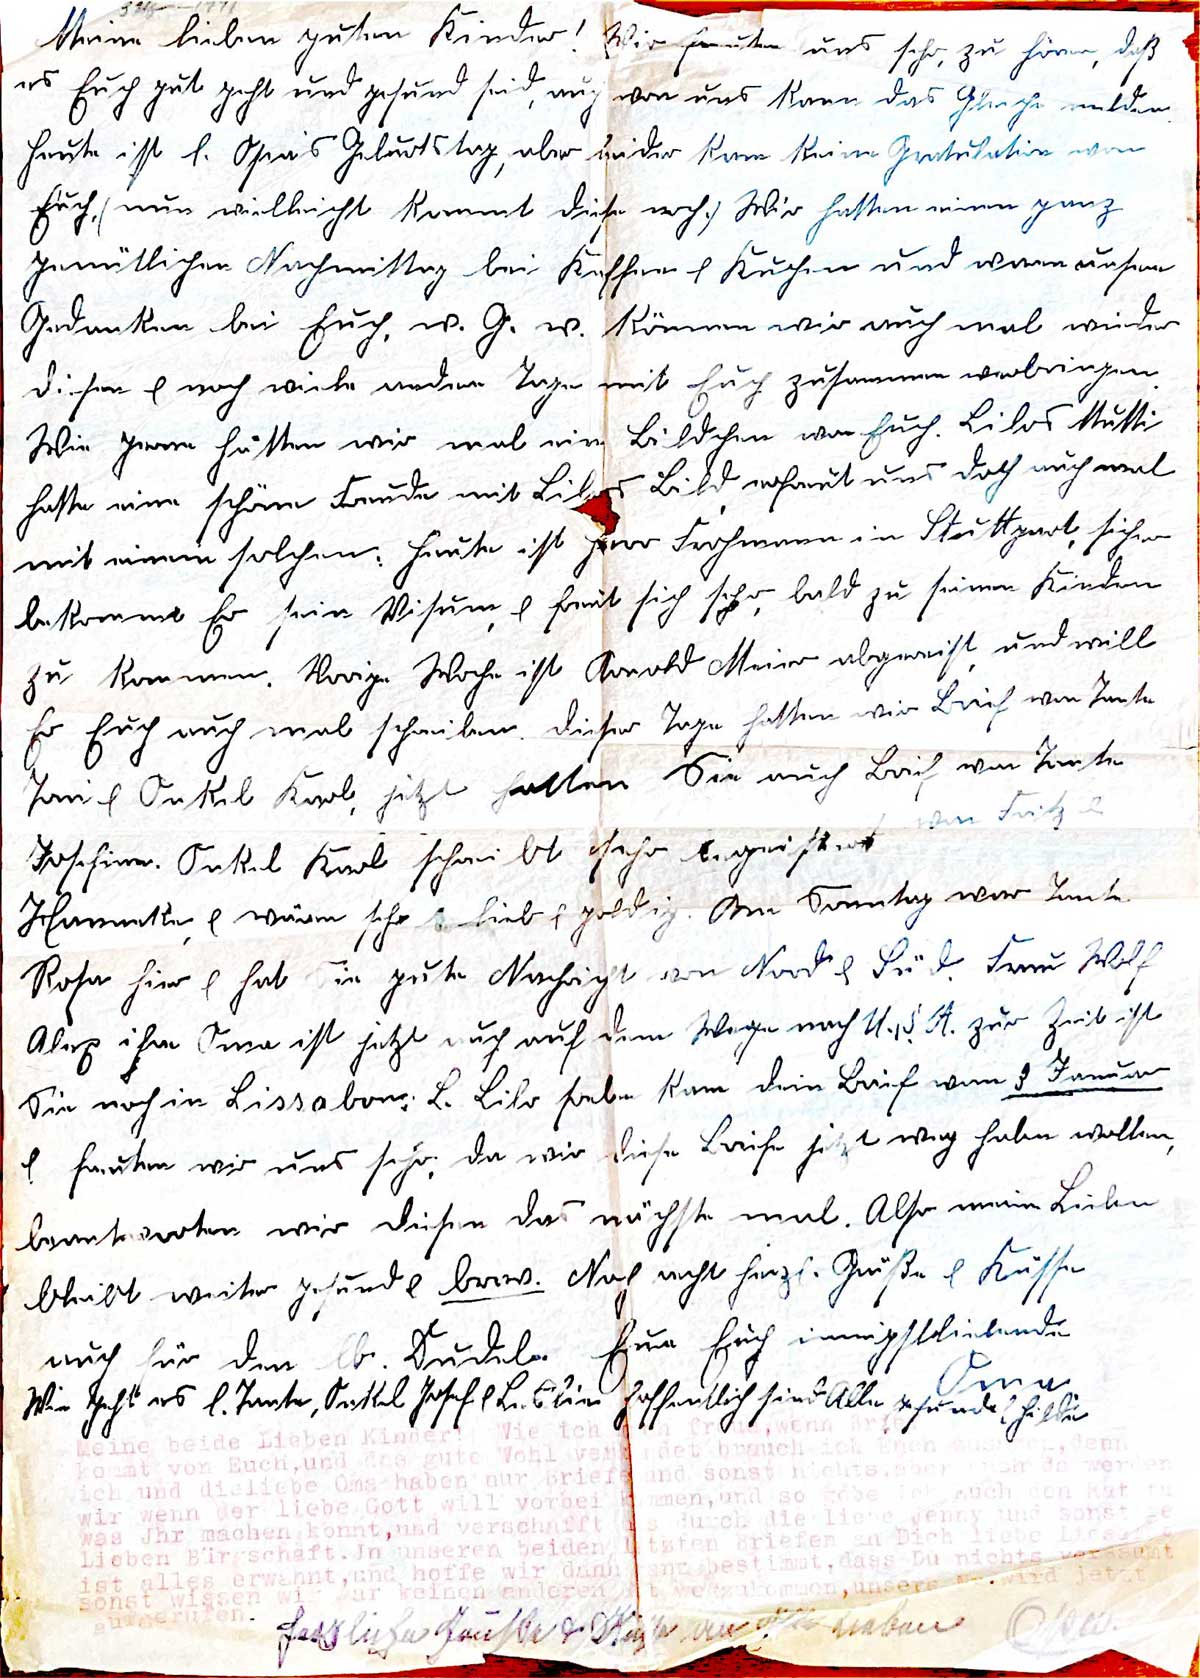 Meine lieben guten Kinder! Wir freuten uns sehr, zu hören, daß
es Euch gut geht und gesund seid, auch von uns kann das Gleiche melden.
Heute ist l. Opa's Geburtstag, aber leider kam keine Gratulation von
Euch, (nun vielleicht kommt diese noch.) Wir hatten einen ganz
gemütlichen Nachmittag bei Kaffee & Kuchen und waren unsere
Gedanken bei Euch, w. G. w. können wir auch mal wieder
diesen & noch viele andere Tage mit Euch zusammen verbringen.
Wie gerne hätten wir mal ein Bildchen von Euch. Lilos Mutti
hatte eine schöne Freude mit Lilos Bild, erfreut uns doch auch mal
mit einem solchen. Heute ist Herr Frohmann in Stuttgart, sicher
bekommt Er sein Visum, & freut sich sehr, bald zu seinen Kindern
zu kommen. Vorige Woche ist Arnold Meier abgereist, und will
Er Euch auch mal schreiben. Dieser Tage hatten wir Brief von Tante
Toni & Onkel Karl, jetzt hatten Sie auch Brief von Tante
Josefine. Onkel Karl schreibt sehr begeistert von Fritz &
Hannelte, & wären sehr lieb & goldig. Am Sonntag war Tante
Rosa hier & hat Sie gute Nachricht von Nord & Süd. Frau Wolf
ihre Oma ist jetzt auch auf dem Wege nach U.S.A. zur Zeit ist
Sie noch in Lissabon. L. Lilo soeben kam dein Brief vom 8 Januar
& freuten wir uns sehr, da wir diese Briefe jetzt weg haben wollen,
beantworten wir diesen das nächste mal. Also meine Lieben
bleibt weiter gesund & brav. Noch recht herzl. Grüße & Küsse
auch für den lb. Rudel. Eure Euch innigstliebende
Oma
Wie geht es l. Tante, Onkel Josef & hoffentlich sind Alle gesund
Meine beide Lieben Kinder! Wie ich mich freue, wenn Brief
kommt von Euch, und das gute Wohl vermeldet brauch ich Euch denn
ich und die liebe Oma haben nur Briefe und sonst nichts, aber auch da werden
wir wenn der liebe Gott will vorbei kommen, und so gebe ich Euch den Rat
was Jhr machen könnt, und verschafft uns durch die liebe Jenny und sonst
Lieben Bürgschaft. Jn unseren beiden letzten Briefen an Dich liebe
ist alles erwähnt, und hoffe wir dann ganz bestimmt, dass Du nichts versäumt
sonst wissen wir gar keinen anderen wegzukommen, unsere wird jetzt
aufgerufen.
Herzliche Grüsse & Küsse von Euren lieben Opa.